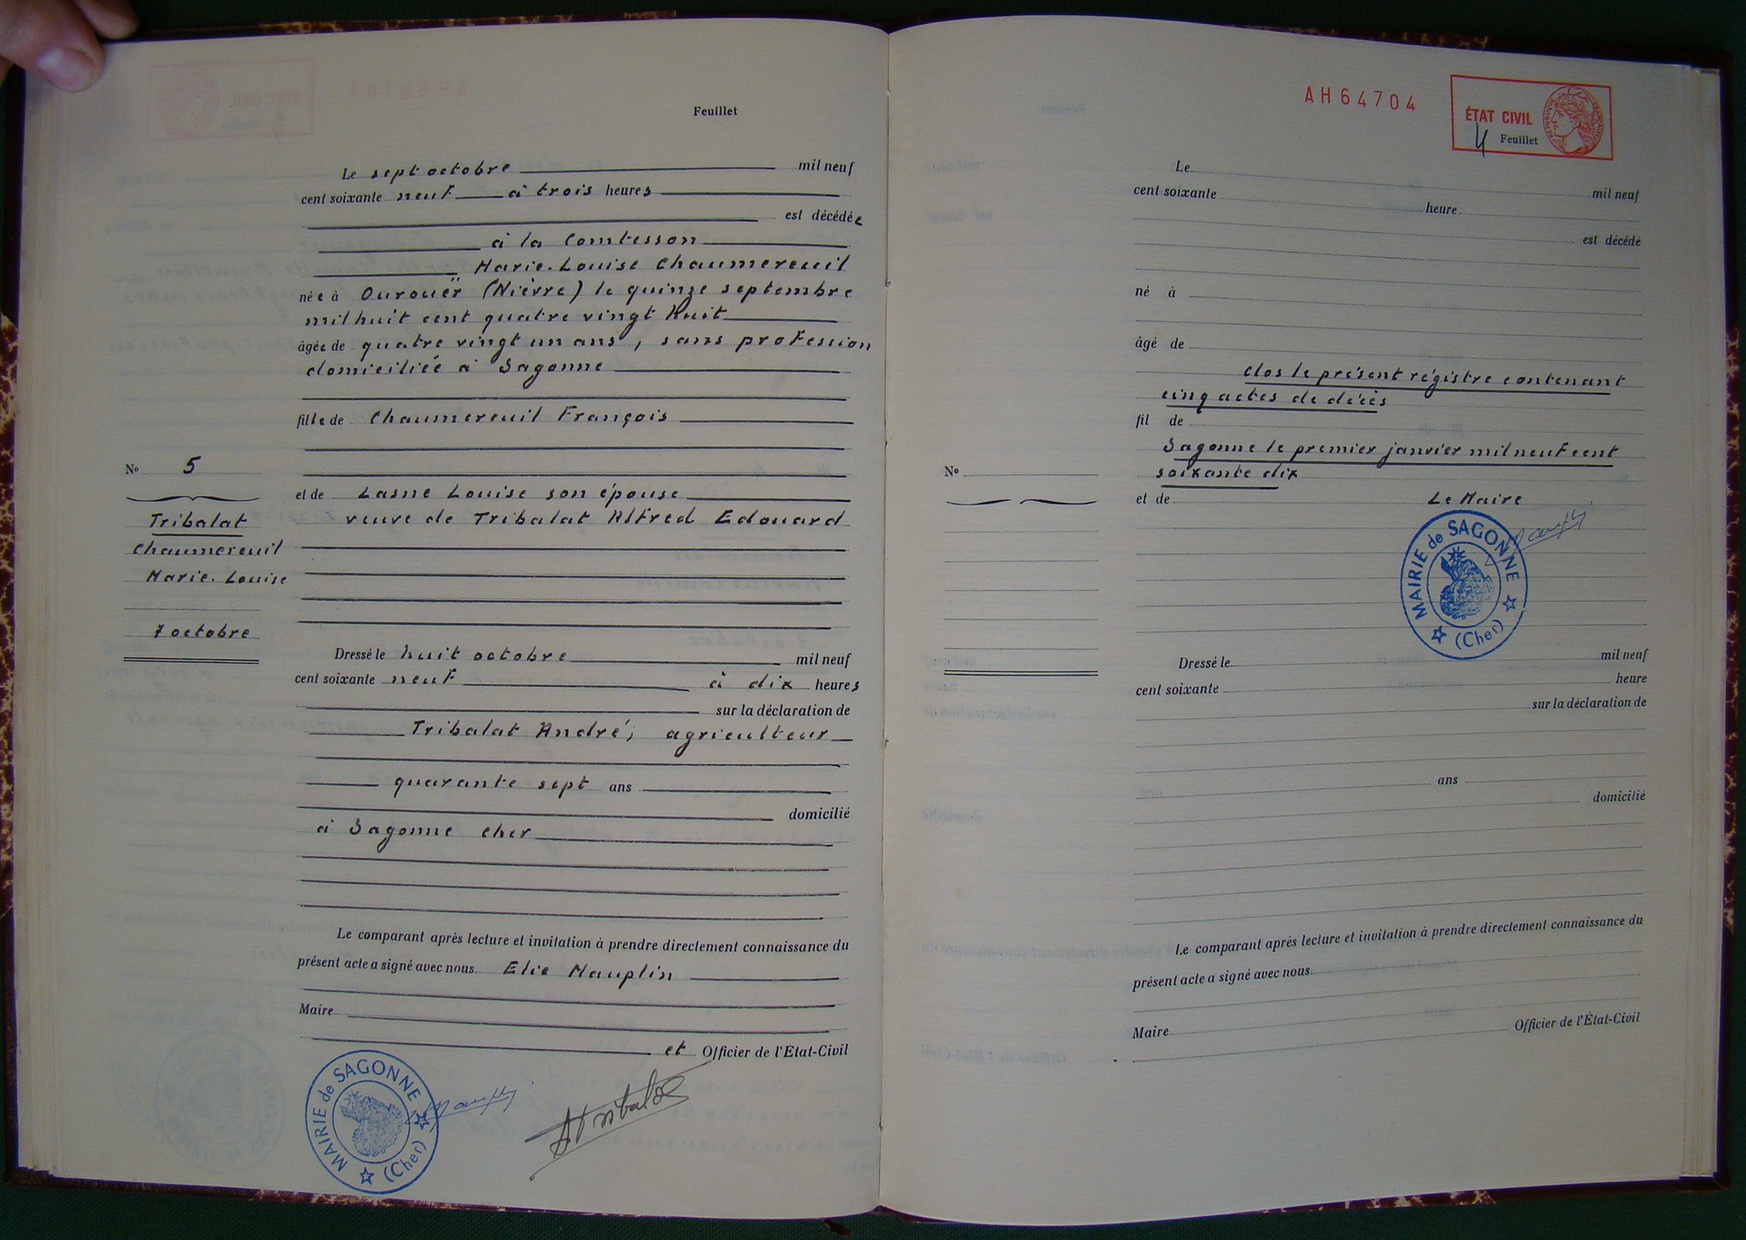 Feuillet
Le sept octobre mil neuf
cent soixante neuf à trois heures
est décédée
à la Comtesson
Marie-Louise Chaumereuil
née à Ourouër (Nièvre) le quinze septembre
mil huit cent quatre vingt huit
âgée de quatre vingt un ans, sans profession
domiciliée à Sagonne
fille de Chaumereuil François
et de Lasne Louise son épouse
veuve de Tribalat Alfred Edouard
No 5
Tribalat
Chaumereuil
Marie-Louise
7 octobre
Dressé le huit octobre mil neuf
cent soixante neuf à dix heures
sur la déclaration de
Tribalat André, agriculteur
quarante sept ans
domicilié
à Sagonne cher
Le comparant après lecture et invitation à prendre directement connaissance du
présent acte a signé avec nous Elie Mauplin
Maire
et Officier de l'État-Civil
MAIRIE de SAGONNE
(Cher)
AH64704
ÉTAT CIVIL
4 Feuillet
Le mil neuf
cent soixante heure
est décédé
né à
âgé de
clos le présent régistre contenant
cinq actes de décès
fil de
Sagonne le premier janvier mil neuf cent
soixante dix
No
et de Le Maire
MAIRIE de SAGONNE
(Cher)
Dressé le mil neuf
cent soixante heure
sur la déclaration de
ans
domicilié
Le comparant après lecture et invitation à prendre directement connaissance du
présent acte a signé avec nous
Maire Officier de l'État-Civil